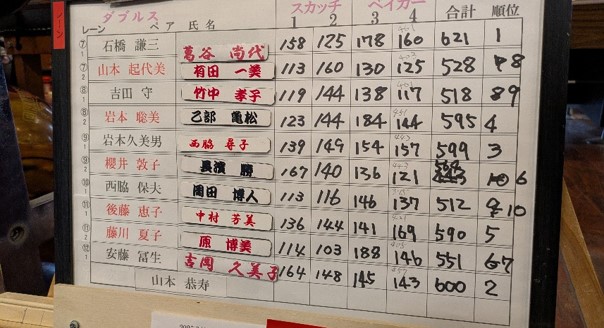 ダブルス スカッチ ベイカー 合計 順位
レーン ペア 氏名 1 2 3 4
⑦1 石橋 謙三 葛谷 尚代 158 125 178 160 621 1
⑦2 山本 起代美 有田 一美 113 160 130 125 528 8
⑧1 吉田 守 竹中 孝子 119 144 138 117 518 9
⑧2 岩本 聡美 乙部 亀松 123 144 184 144 595 4
⑨1 岩本久美男 西脇 尋子 139 149 154 157 599 3
⑨2 櫻井 敦子 眞濱 勝 167 140 136 121 564 6
⑩1 西脇 保夫 岡田 博人 113 116 146 137 512 10
後藤 恵子 中村 芳美 136 144 141 169 590 5
藤川 夏子 原 博美 114 103 188 146 551 7
安藤 冨生 吉岡 久美子 164 148 145 143 600 2
山本 恭寿